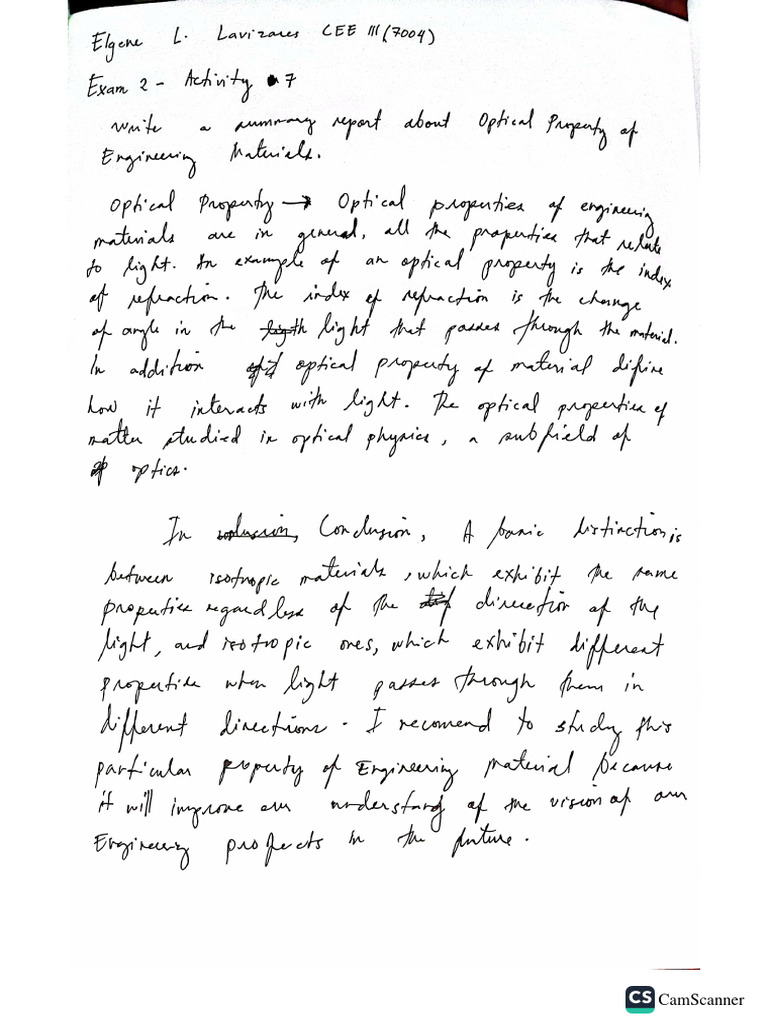 Elgene L. Lavizares CEE III (7004)
Exam 2 - Activity 7
Write a summary report about Optical Property of
Engineering Materials.
Optical Property → Optical properties of engineering
materials are in general, all the properties that relate
to light. An example of an optical property is the index
of refraction. The index of refraction is the change
of angle in the ligth light that passes through the material.
In addition optical property of material difine
how it interacts with light. The optical properties of
matter studied in optical physics, a subfield of
of optics.
In Conclusion, A basic distinction is
between isotropic materials, which exhibit the same
properties regardless of the direction of the
light, and isotropic ones, which exhibit different
properties when light passes through them in
different directions. I recomend to study this
particular property of Engineering material because
it will improve our understandg of the vision of our
Engineering projects in the future.
CS CamScanner